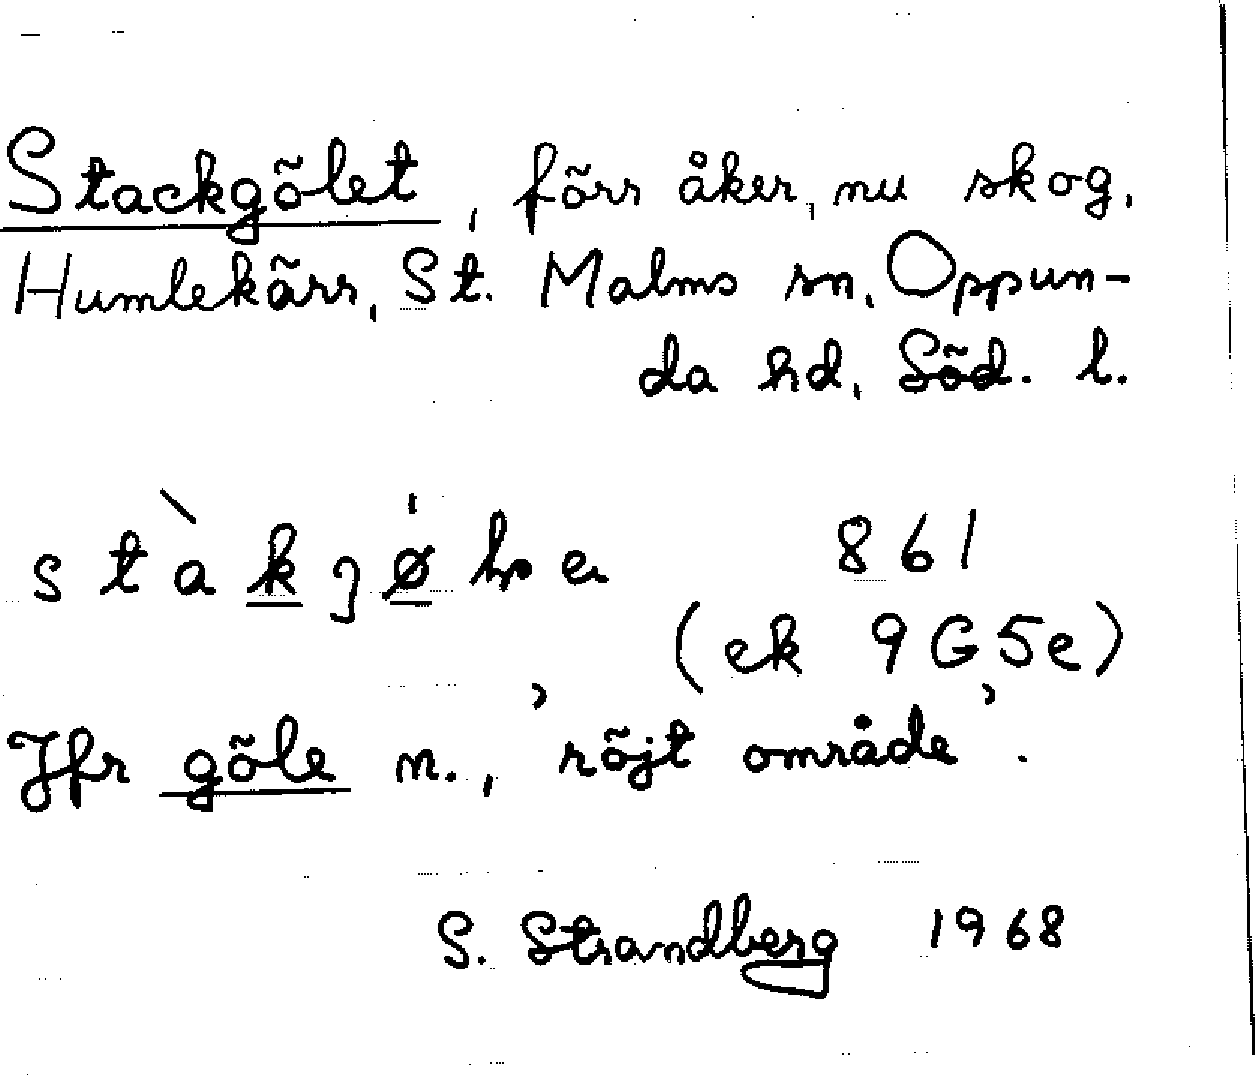 Stackgölet, förr åker, nu skog,
Humlekärr, St. Malms sn, Oppun-
da hd, Söd. l.
861
(ek 9G5e)
Jfr göle n., 'röjt område'.
S. Strandberg 1968